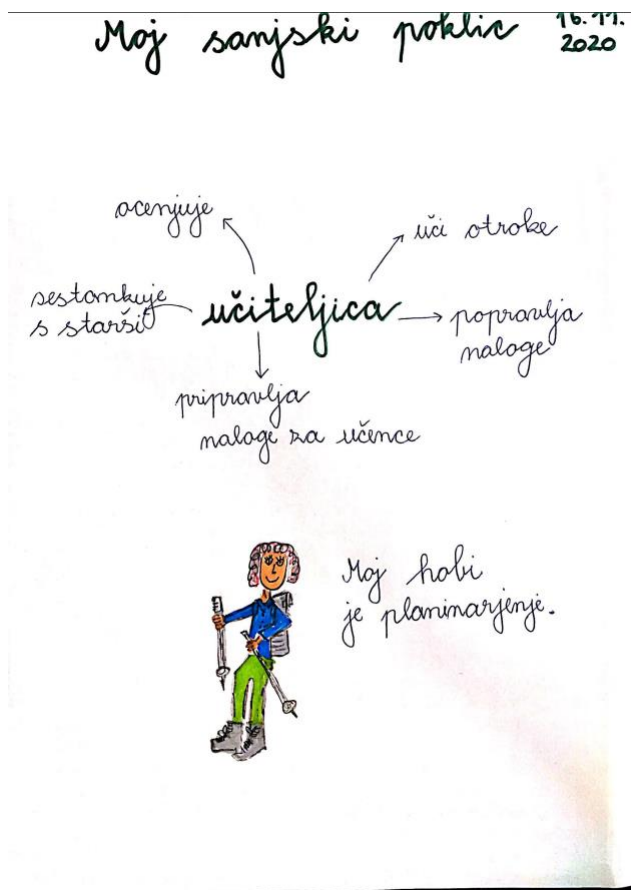 Moj sanjski poklic
16.11.
2020
ocenjuje
uči otroke
sestankuje
s starši
učiteljica
popravlja
naloge
pripravlja
naloge za učence
Moj hobi
je planinarjenje.